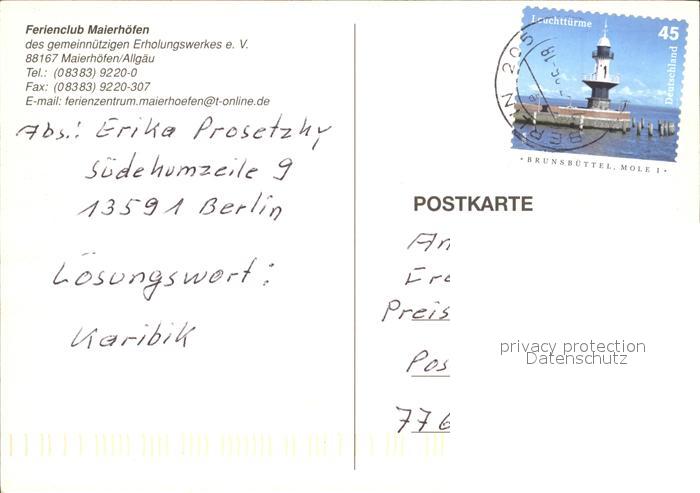 Ferienclub Maierhöfen
des gemeinnützigen Erholungswerkes e. V.
88167 Maierhöfen/Allgäu
Tel.: (08383) 9220-0
Fax: (08383) 9220-307
E-mail: ferienzentrum.maierhoefen@t-online.de
Abs.: Erika Prosetzky
Südekumzeile 9
13591 Berlin
Lösungswort:
Karibik
Leuchttürme
45
Deutschland
BRUNSBÜTTEL, MOLE 1
BERLIN 205
POSTKARTE
An
Fra
Preis
Pos
776
privacy protection
Datenschutz